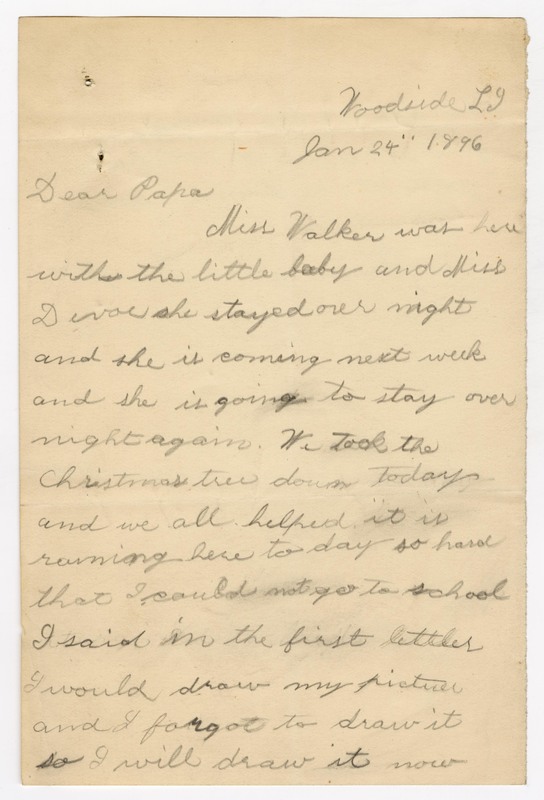 Woodside L I
Jan 24" 1896
Dear Papa
Miss Walker was here
with the little baby and Miss
Devoe she stayed over night
and she is coming next week
and she is going to stay over
night again. We took the
Christmas tree down today
and we all helped it is
raining here to day so hard
that I could not go to school
I said in the first lettler
I would draw my picture
and I forgot to draw it
so I will draw it now